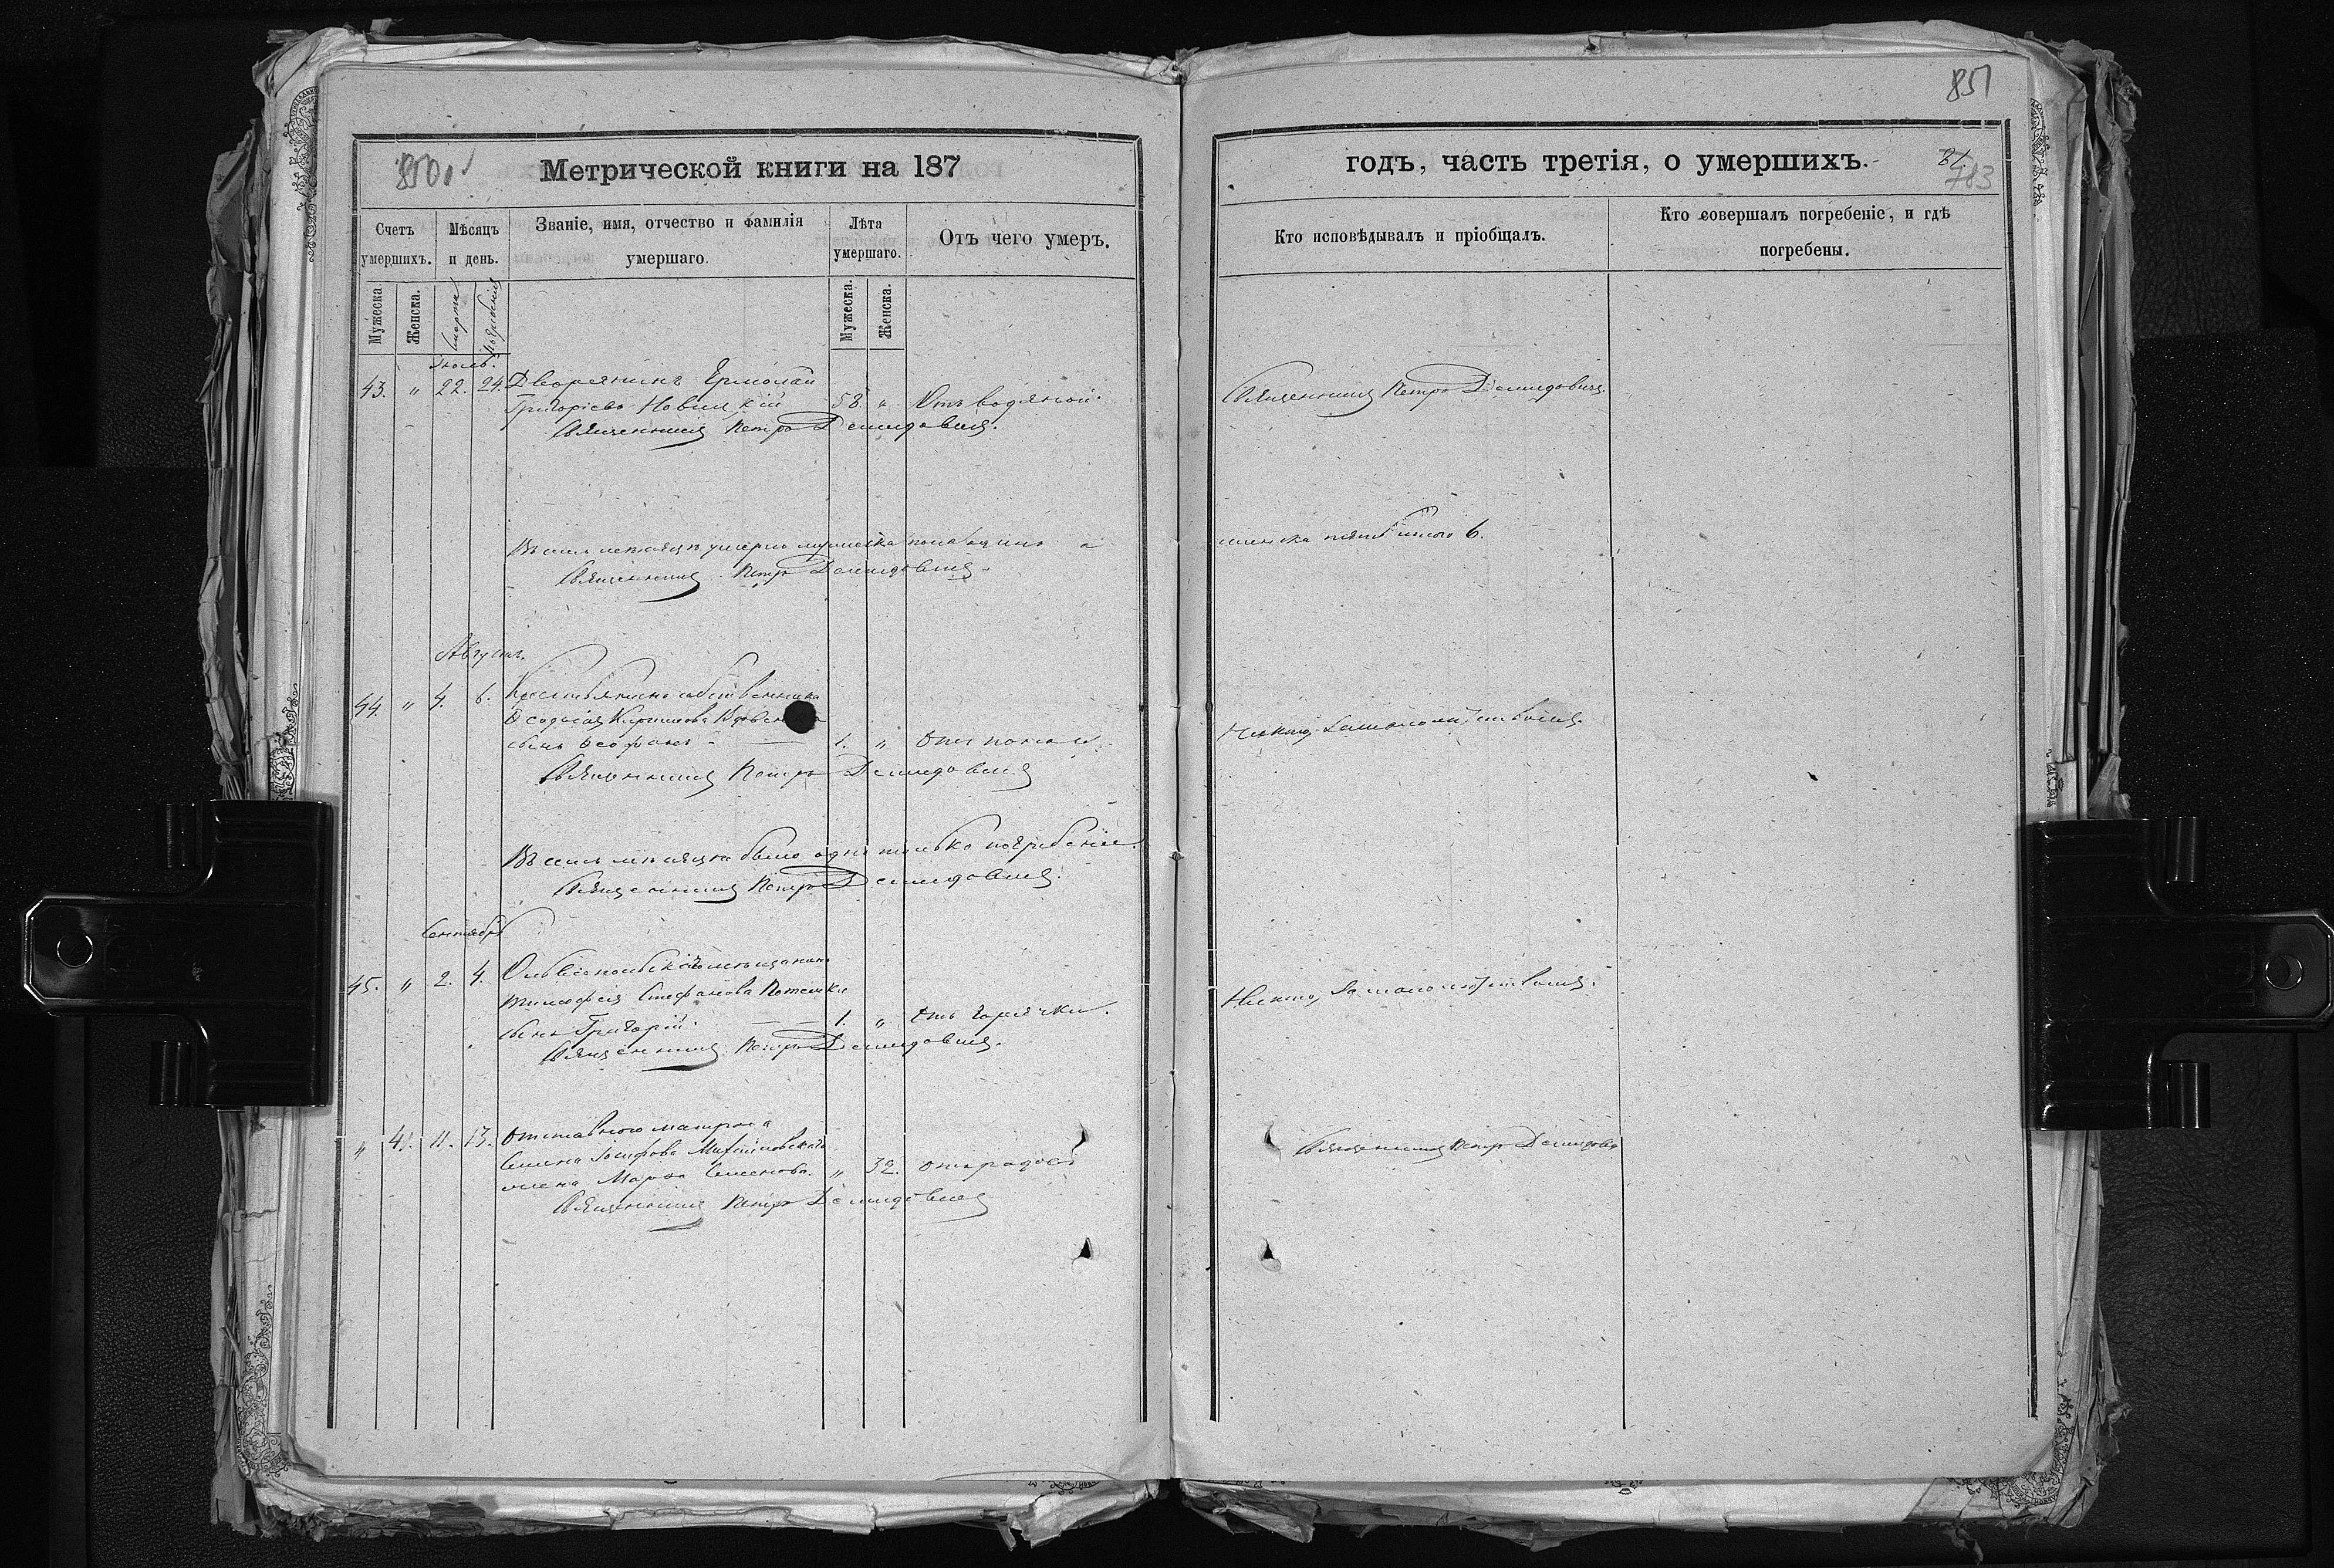 850
Метрической книги на 187
Счетъ умершихъ.
Мѣсяцъ и день.
Званіе, имя, отчество и фамилія умершаго.
Лѣта умершаго.
Отъ чего умеръ.
Мужеска.
Женска.
смерти
погребенія
Мужеска.
Женска.
Іюль.
43. " 22. 24. Дворянинъ Ермолай
Григоріевъ Новицкій 58. " Отъ водяной.
Священникъ Петръ Демидовичъ.
Въ семъ мѣсяцѣ умерло мужеска пола одинъ а
Священникъ Петръ Демидовичъ.
Августъ.
44. " 4. 6. Крестьянина собственника
Ѳеодосія
сынъ Ѳеофанъ 1. " Отъ
Священникъ Петръ Демидовичъ
Въ семъ мѣсяцѣ было одно только погребеніе.
Священникъ Петръ Демидовичъ.
Сентябрь
45. " 2. 4. Ольвіопольскаго мѣщанина
Тимофея Стефанова
сынъ Григорій. 1. " Отъ горячки.
Священникъ Петръ Демидовичъ.
" 41. 11. 13. Отставного матроса
Семена Іосифова
жена Марфа Семенова. " 32. отъ родовъ
Священникъ Петръ Демидовичъ
851
годъ, часть третія, о умершихъ.
81.
783
Кто исповѣдывалъ и пріобщалъ.
Кто совершалъ погребеніе, и гдѣ погребены.
Священникъ Петръ Демидовичъ.
женска 6.
Никто, за малолѣтствомъ.
Никто, за малолѣтствомъ.
Священникъ Петръ Демидовичъ